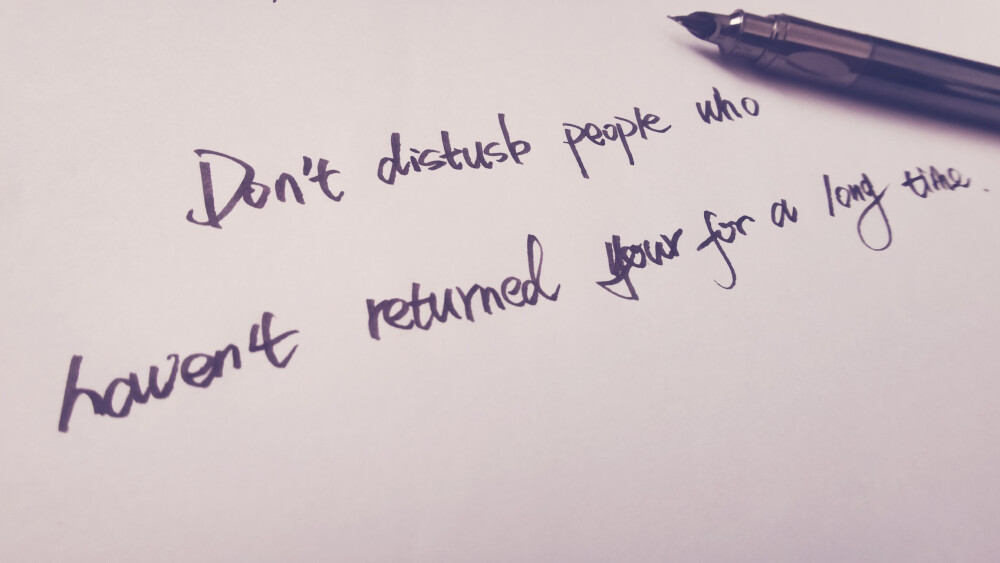 Don't disturb people who
haven't returned your for a long time.